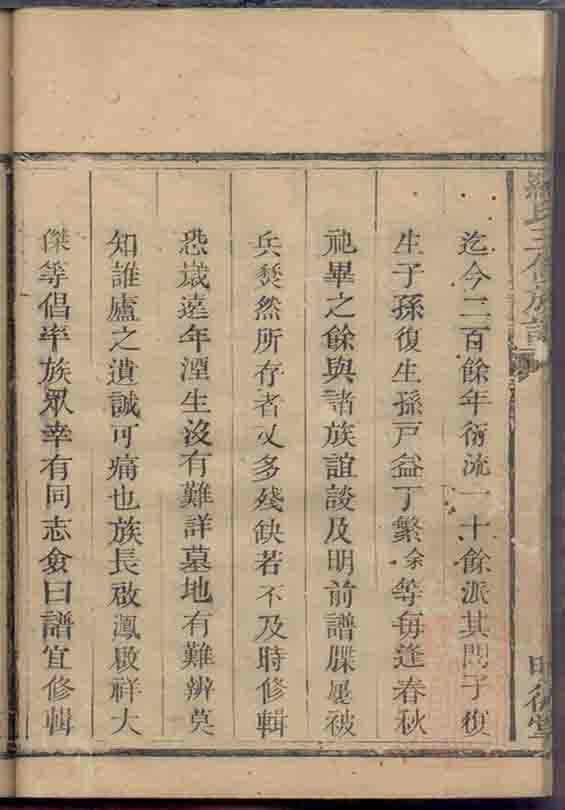 迄今二百餘年衍流一十餘派其間子復
生子孫復生孫戸益丁繁余等每逢春秋
祀畢之餘與諸族誼談及明前譜牒屢被
兵燹然所存者又多残缺若不及時修輯
恐歲遠年湮生沒有難詳墓地有難辨莫
知誰廬之遺誠可痛也族長啟鳳啟祥大
傑等倡率族眾幸有同志僉曰譜宜修輯